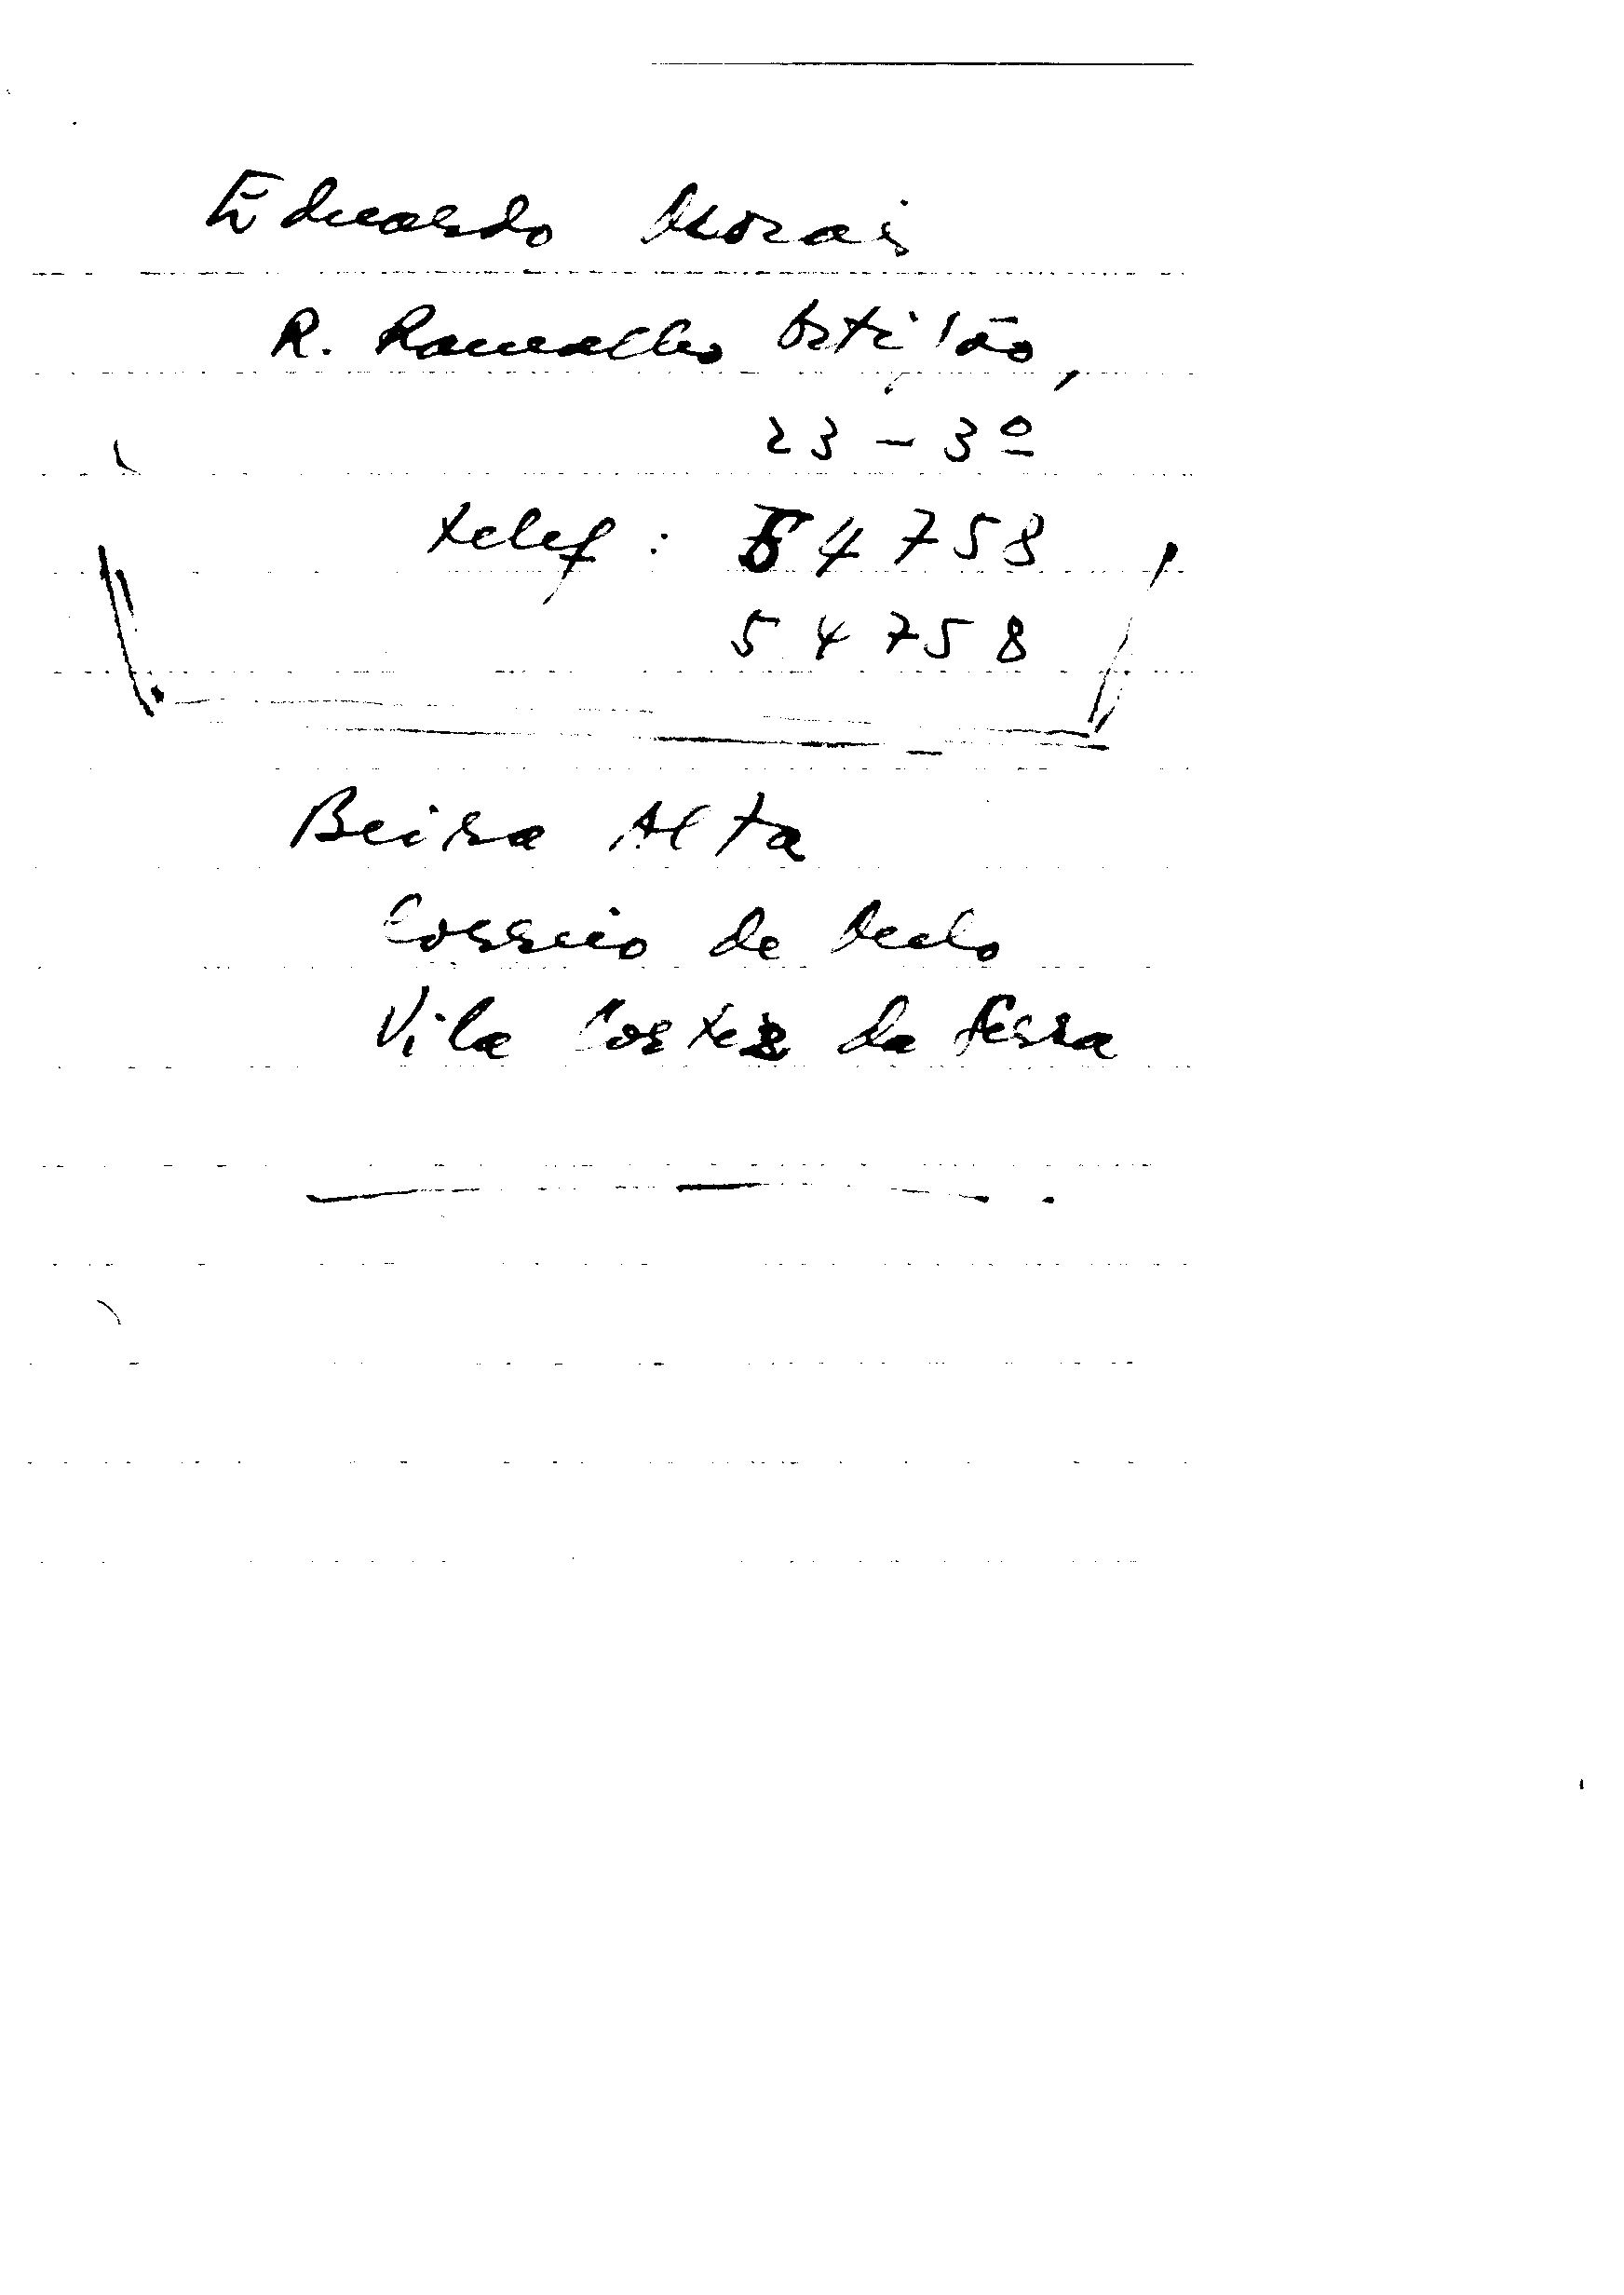 Eduardo Morais
R. Ramalho Ortigão,
23 - 3º
telef: 54758
54758
Beira Alta
Correio de Melo
Vila Cortez da Serra